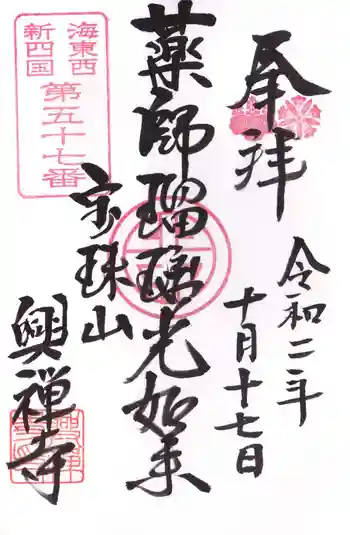 奉拝
令和二年
十月十七日
薬師瑠璃光如来
宝珠山
興禅寺
海東西
新四国
第五十七番